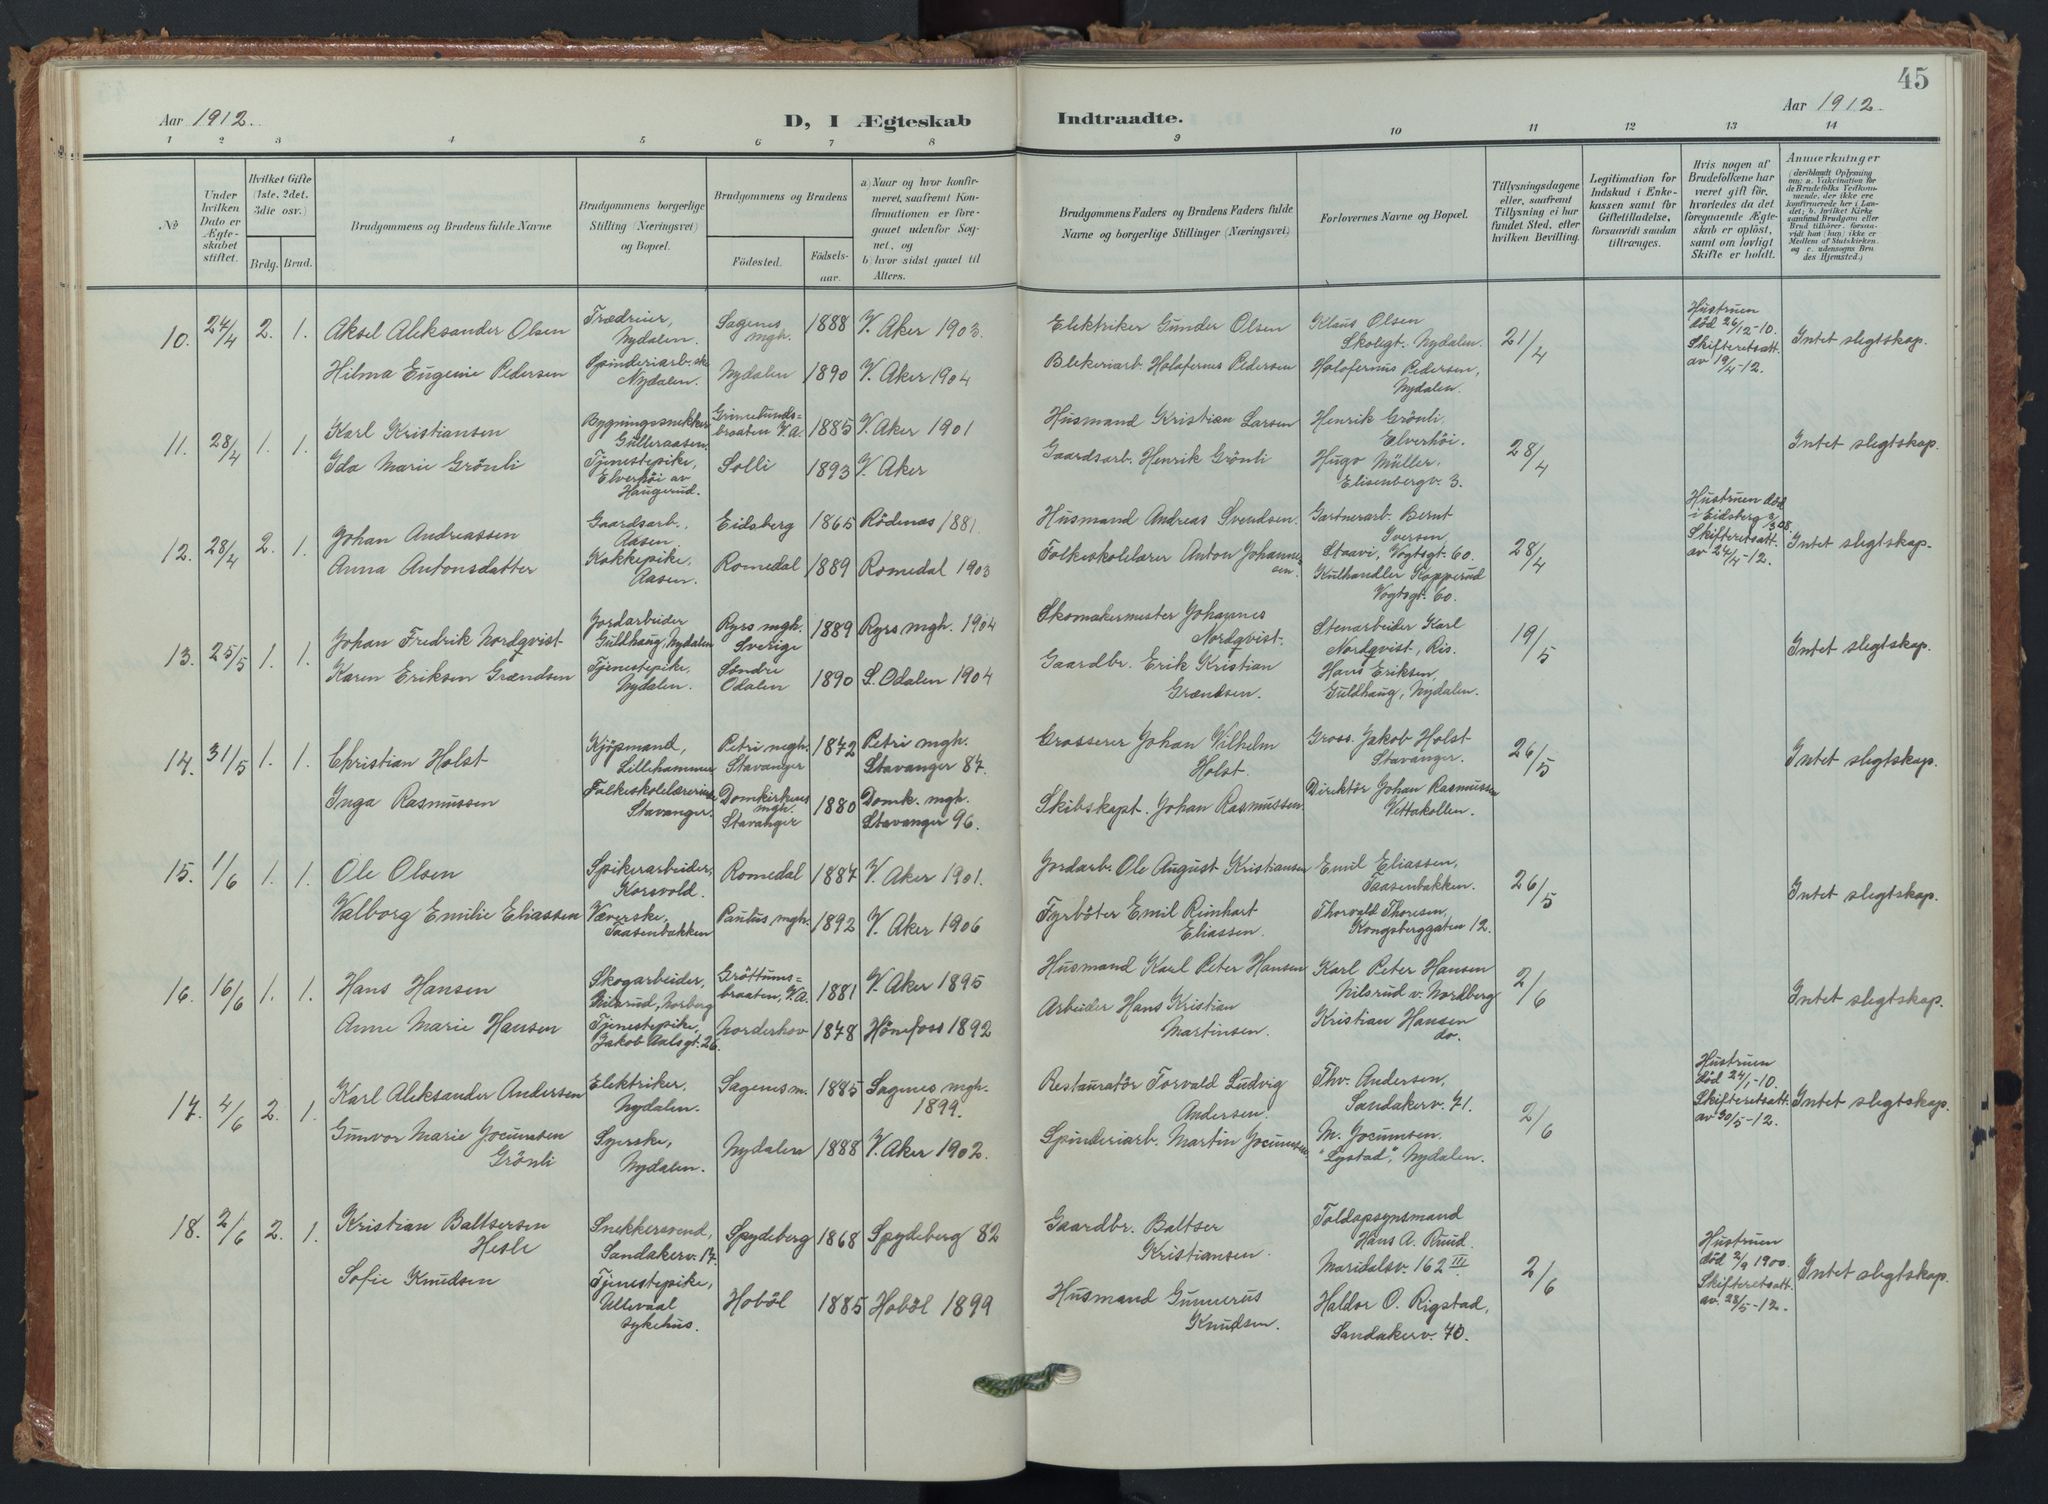 45
Aar 1912.
D, I Ægteskab
Indtraadte.
Aar 1912.
1 2 3 4 5 6 7 8
9 10 11 12 13 14
No
Under hvilken Dato er Ægteskabet stiftet.
Hvilket Gifte (1ste. 2det. 3die osv.)
Brdg. Brud.
Brudgommens og Brudens fulde Navne
Brudgommens borgerlige Stilling (Næringsvei) og Bopæl.
Brudgommens og Brudens
Fødested.
Fødselsaar.
a) Naar og hvor konfirmeret, saafremt Konfirmationen er foregaaet udenfor Sognet, og
b) hvor sidst gaaet til Alters.
Brudgommens Faders og Brudens Faders fulde Navne og borgerlige Stillinger (Næringsvei)
Forlovernes Navne og Bopæl.
Tillysningsdagene eller, saafremt Tillysning ei har fundet Sted, efter hvilken Bevilling.
Legitimation for Indskud i Enkekassen samt for Giftetilladelse, forsaavidt saadan tiltrænges.
Hvis nogen af Brudefolkene har været gift før, hvorledes da det foregaaende Ægteskab er opløst, samt om lovligt Skifte er holdt.
Anmærkninger (deriblandt Oplysning om: a. Vakcination for de Brudefolks Vedkommende, der ikke ere konfirmerede her i Landet; b. hvilket Kirkesamfund Brudgom eller Brud tilhører, forsaavidt han (hun) ikke er Medlem af Statskirken, og c. udensogns Brudes Hjemsted.)
10. 24/4 2. 1.
Aksel Aleksander Olsen
Nydalen.
Sagenes mgh. 1888 V. Aker 1903.
Elektriker Gunder Olsen
Klaus Olsen
Skoligt. Nydalen.
21/4
Hustruen
død 26/12-10.
Skifteretsatt.
av 19/4-12.
Intet slegtskap.
Hilma Eugenie Pedersen
Spinderiarb.ske
Nydalen.
Nydalen 1890 V. Aker 1904
Blekeriarb. Holofernes Pedersen
Holofernus Pedersen,
Nydalen.
11. 28/4 1. 1.
Karl Kristiansen
Bygningssnekker
Gulleraasen.
Grimelundsbraaten V.A. 1885 V. Aker 1901
Husmand Kristian Larsen
Henrik Grönli
Elverhöi.
28/4
Intet slegtskap.
Ida Marie Grönli
Tjenestepike,
Elverhöi av
Haugerud.
Solli 1893 V. Aker
Gaardsarb. Henrik Grönli
Hugo Müller.
Elisenbergv. 3.
12. 28/4 2. 1.
Johan Andreassen
Gaardsarb.,
Aasen.
Eidsberg 1865 Rödenas 1881.
Husmand Andreas Svendsen.
Gartnerarb. Bernt
Iversen
Staavi, Vogtsgt. 60.
28/4
Hustruen död
i Eidsberg 3/3 08.
Skifteretsatt.
av 24/4-12.
Intet slegtskap.
Anna Antonsdatter
Kokkepike,
Aasen.
Romedal 1889 Romedal 1903
Folkeskolelærer Anton Johannesen.
Kulhandler Kopperud
Vogtsgt. 60.
13. 25/5 1. 1.
Johan Fredrik Nordqvist
Jordarbeider
Guldhaug, Nydalen
Ryrs mgh. Sverige 1889 Ryrs mgh. 1904
Skomakermester Johannes
Nordqvist.
Stenarbeider Karl
Nordqvist, Ris.
19/5
Intet slegtskap.
Karen Eriksen Grændsen
Tjenestepike,
Nydalen.
Søndre Odalen 1890 S. Odalen 1904
Gaardbr. Erik Kristian
Grændsen.
Hans Eriksen,
Guldhaug, Nydalen.
14. 31/5 1. 1.
Christian Holst
Kjøpmand,
Lillehammer
Petri mgh. Stavanger 1872 Petri mgh. Stavanger 87.
Grosserer Johan Vilhelm
Holst.
Gross. Jakob Holst
Stavanger.
26/5
Intet slegtskap.
Inga Rasmussen
Folkeskolelærerinde
Stavanger.
Domkirkens mgh. Stavanger 1880 Domk. mgh. Stavanger 96.
Skibskapt. Johan Rasmussen.
Direktör Johan Rasmussen
Vettakollen.
15. 1/6 1. 1.
Ole Olsen
Spikerarbeider,
Korsvold.
Romedal 1887 V. Aker 1901.
Jordarb. Ole August Kristiansen
Emil Eliassen,
Taasenbakken.
26/5
Intet slegtskap.
Valborg Emilie Eliassen
Væverske,
Taasenbakken
Paulus mgh. 1892 V. Aker 1906
Fyrböter Emil Reinhart
Eliassen.
Thorvald Thoresen,
Kongsberggaten 12.
16. 16/6 1. 1.
Hans Hansen
Skogarbeider,
Nilsrud, Norberg
Gröttumsbraaten, V.A. 1881 V. Aker 1895
Husmand Karl Peter Hansen
Karl Peter Hansen
Nilsrud v. Nordberg
2/6
Intet slegtskap.
Anne Marie Hansen
Tjenestepike,
Jakob Aalsgt. 26.
Norderhov 1878 Hönefoss 1892
Arbeider Hans Kristian
Martinsen.
Kristian Hansen
do.
17. 4/6 2. 1.
Karl Aleksander Andersen
Elektriker,
Nydalen.
Sagenes m. 1885 Sagenes mgh. 1899.
Restauratör Torvald Ludvig
Andersen.
Thv. Andersen,
Sandakerv. 71.
2/6
Hustruen
död 24/1-10.
Skifteretsatt.
av 30/5-12.
Intet slegtskap.
Gunvor Marie Jocumsen
Grönli
Syerske,
Nydalen.
Nydalen 1888 V. Aker 1902.
Spinderiarb. Martin Jocumsen
M. Jocumsen.
"Lystad", Nydalen.
18. 2/6 2. 1.
Kristian Baltsersen
Hesle
Snekkersvend,
Sandakerv. 17.
Spydeberg 1868 Spydeberg 82
Gaardbr. Baltser
Kristiansen.
Toldopsynsmand
Hans A. Ruud.
Maridalsv. 162 III
2/6
Hustruen
död 2/9 1900.
Skifteretsatt.
av. 28/5-12.
Intet slegtskap.
Sofie Knudsen
Tjenestepike,
Ullevaal
sykehus.
Hoböl 1885 Hoböl 1899
Husmand Gunnerus
Knudsen.
Haldor O. Rigstad,
Sandakerv. 70.